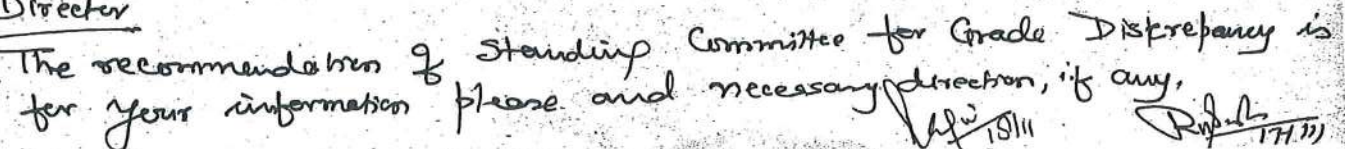 Director
The recommendation of Standing Committee for Grade Diskrepancy is
for your information please and necessary direction, if any,
15/11